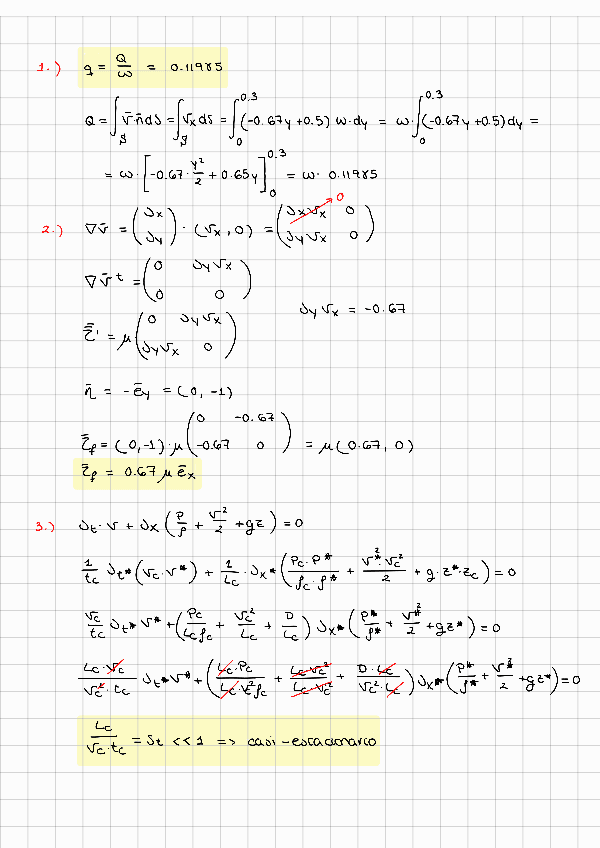 1.) q = Q/ω = 0.11985
Q = ∫_S v̄·n̄ dS = ∫_S vₓ dS = ∫₀^0.3 (-0.67y + 0.5) ω·dy = ω·∫₀^0.3 (-0.67y + 0.5) dy =
= ω·[-0.67·y²/2 + 0.65y]₀^0.3 = ω· 0.11985
2.) ∇v̄ = (∂x ∂y) · (vₓ, 0) = (∂x vₓ 0 ∂y vₓ 0) 0
∇v̄ᵗ = (0 ∂y vₓ 0 0)
∂y vₓ = -0.67
τ̿' = μ(0 ∂y vₓ ∂y vₓ 0)
n̄ = -ēy = (0, -1)
τ̄f = (0,-1)·μ(0 -0.67 -0.67 0) = μ(0.67, 0)
τ̄f = 0.67 μ ēx
3.) ∂t·v + ∂x (P/ρ + v²/2 + gz) = 0
1/tc ∂t*(vc·v*) + 1/Lc · ∂x*(Pc·P*/ρc·ρ* + v*²·vc²/2 + g·z*·zc) = 0
vc/tc ∂t* v* + (Pc/Lcρc + vc²/Lc + D/Lc) ∂x*(P*/ρ* + v*²/2 + gz*) = 0
Lc·vc/vc²·tc ∂t*v* + (Lc·Pc/Lc·vc²ρc + Lc·vc²/Lc·vc² + D·Lc/vc²·Lc) ∂x*(P*/ρ* + v*²/2 + gz*) = 0
Lc/vc·tc = St << 1 => casi-estacionario